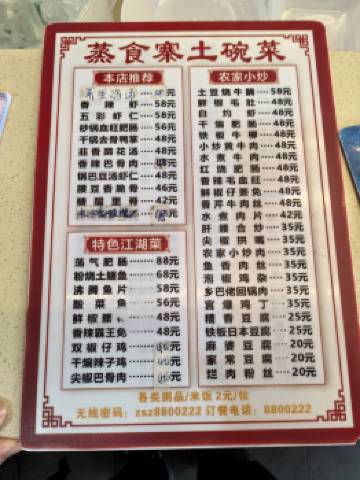 蒸食寨土碗菜
本店推荐
香辣虾 58元
五彩虾仁 58元
砂锅血旺肥肠 56元
干锅去骨鸭掌 48元
韭香腐花汤 48元
香辣巴骨肉
锅巴豆汤虾仁 48元
腰豆香脆骨 46元
糖醋里脊 42元
特色江湖菜
荡气肥肠 88元
粉烧土鳝鱼 68元
沸腾鱼片 58元
酸菜鱼 56元
鲜椒腰
香辣霸王兔 48元
双椒仔鸡
干煸辣子鸡
尖椒巴骨肉
农家小炒
土豆烧牛腩 58元
鲜椒毛肚 48元
白灼虾 48元
干煸肥肠 48元
铁板牛柳 48元
小炒黄牛肉 48元
水煮牛肉 48元
红烧肥肠 48元
香辣毛血旺 48元
鲜椒仔姜兔 48元
香芹牛肉丝 48元
水煮肉片 42元
肝腰合炒 35元
尖椒拱嘴 35元
农家小炒肉 35元
鱼香肉丝 35元
泡椒鸡杂 35元
乡巴佬回锅肉 35元
宫爆鸡丁 35元
椿香豆腐 25元
铁板日本豆腐 25元
麻婆豆腐 20元
家常豆腐 20元
烂肉粉丝 20元
各类粥品/米饭 2元/位
无线密码：zsz8800222 订餐电话：8800222